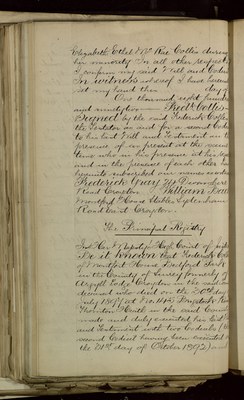 Elizabeth Ethel Collier during
her minority In all other respects
I confirm my said Will and Codicil
In witness whereof I have hereunto
set my hand this day of
One thousand eight hundred
and ninety two Fredk Collier
Signed by the said Frederick Collier
the Testator as and for a second Codicil
to his last Will and Testament in the
presence of us present at the same
time who in his presence at his request
and in the presence of each other have
hereunto subscribed our names as witnesses
Frederick Quarry
Road Croydon William
House Stable Sydenham
Road Croydon
The Principal Registry
Be it known that Frederick Collier
of House Road
in the County of Surrey formerly of
Argyll Lodge Croydon in the said County
deceased who died on the 20th day of
July 1892 at No. Road
Thornton Heath in the said County
made and duly executed his last Will
and Testament with two Codicils (the
second Codicil having been executed on
the 21st day of October 1892) and